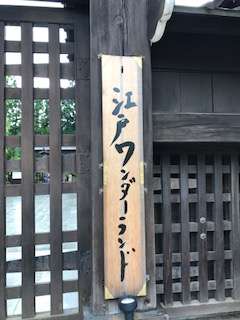 江戸ワンダーランド